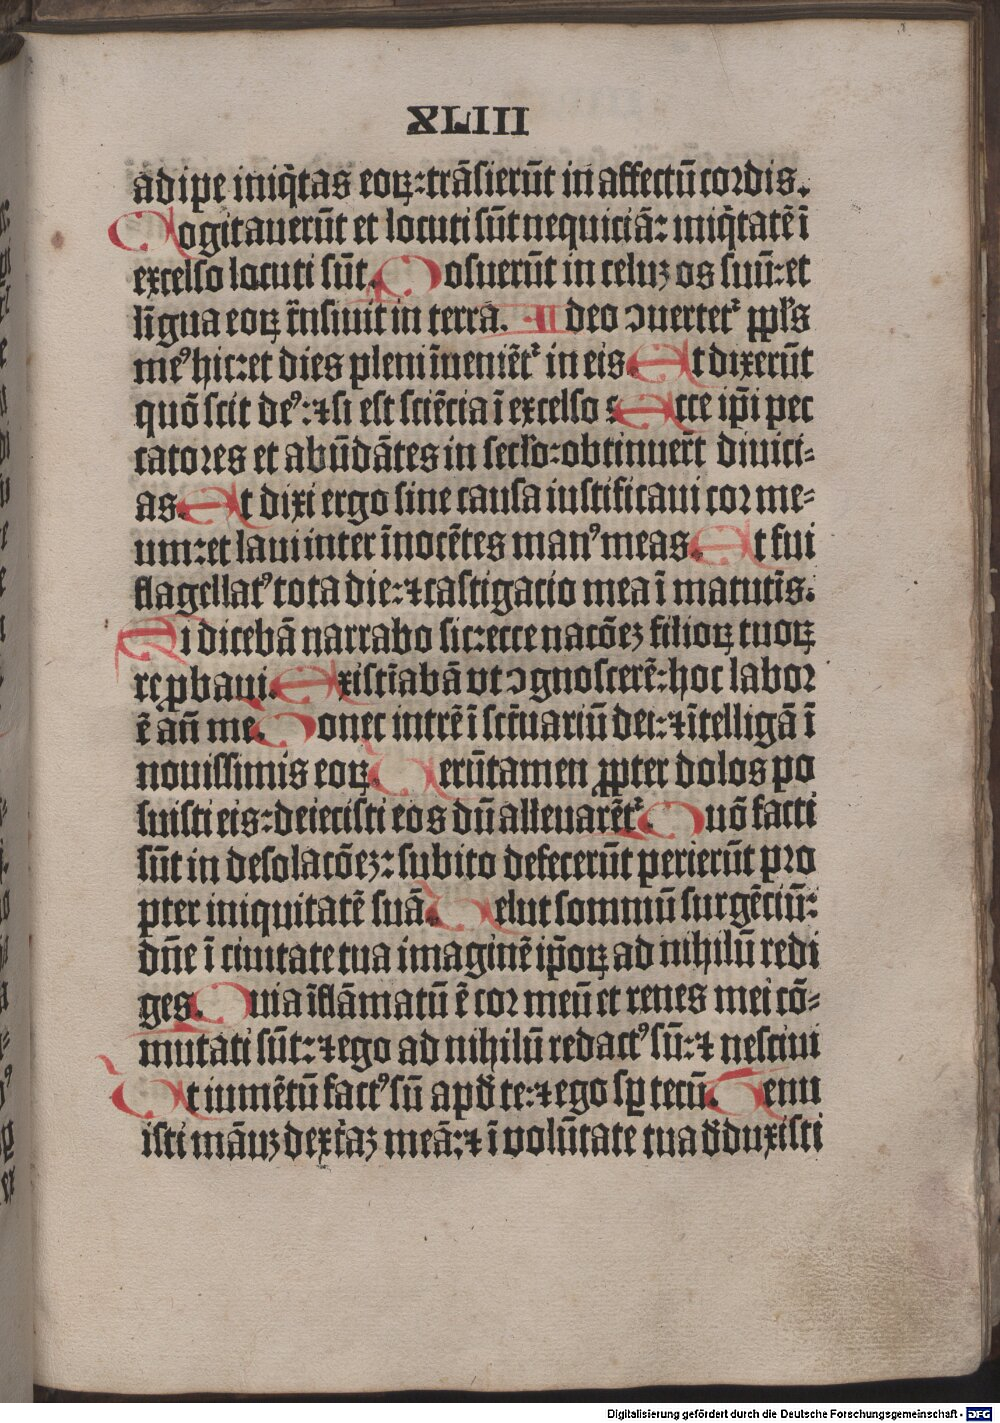 XLIII
adipe iniq̄tas eoꝝ:trāsierūt in affectū cordis.
Cogitauerūt et locuti sūt nequiciā: iniq̄tatē ī
excelso locuti sūt. Posuerūt in celuz os suū:et
līgua eoꝝ trn̄siuit in terra. Ideo ↄuertet᷑ pp̄ls
me⁹ hic:et dies pleni īueniēt᷑ in eis. Et dixerūt
quō scit de⁹:⁊ si est sciēcia ī excelso s Ecce ip̄i pec
catores et abūdātes in sec̄lo:obtinuer̄t diuici⸗
as. Et dixi ergo sine causa iustificaui cor me⸗
um:et laui inter īnocētes man⁹ meas. Et fui
flagellat⁹ tota die:⁊ castigacio mea ī matutīs.
Si dicebā narrabo sic:ecce nacōez filioꝝ tuoꝝ
reꝓbaui. Existīabā vt ↄgnoscerē:hoc labor
ē an̄ me. Donec intrē ī sct̄uariū dei:⁊ ītelligā ī
nouissimis eoꝝ. Uerūtamen ꝓpter dolos po
suisti eis:deiecisti eos dū alleuarēt᷑. Quō facti
sūt in desolacōez:subito defecerūt perierūt pro
pter iniquitatē suā. Uelut sommū surgēciū:
dn̄e ī ciuitate tua imaginē ip̄oꝝ ad nihilū redi
ges. Quia īflāmatū ē cor meū et renes mei cō⸗
mutati sūt:⁊ ego ad nihilū redact⁹ sū:⁊ nesciui
Ut iumētū fact⁹ sū apd̄ te:⁊ ego sꝑ tecū. Tenu
isti māuz dext̄az meā:⁊ ī volūtate tua d̄duxisti
Digitalisierung gefördert durch die Deutsche Forschungsgemeinschaft - DFG